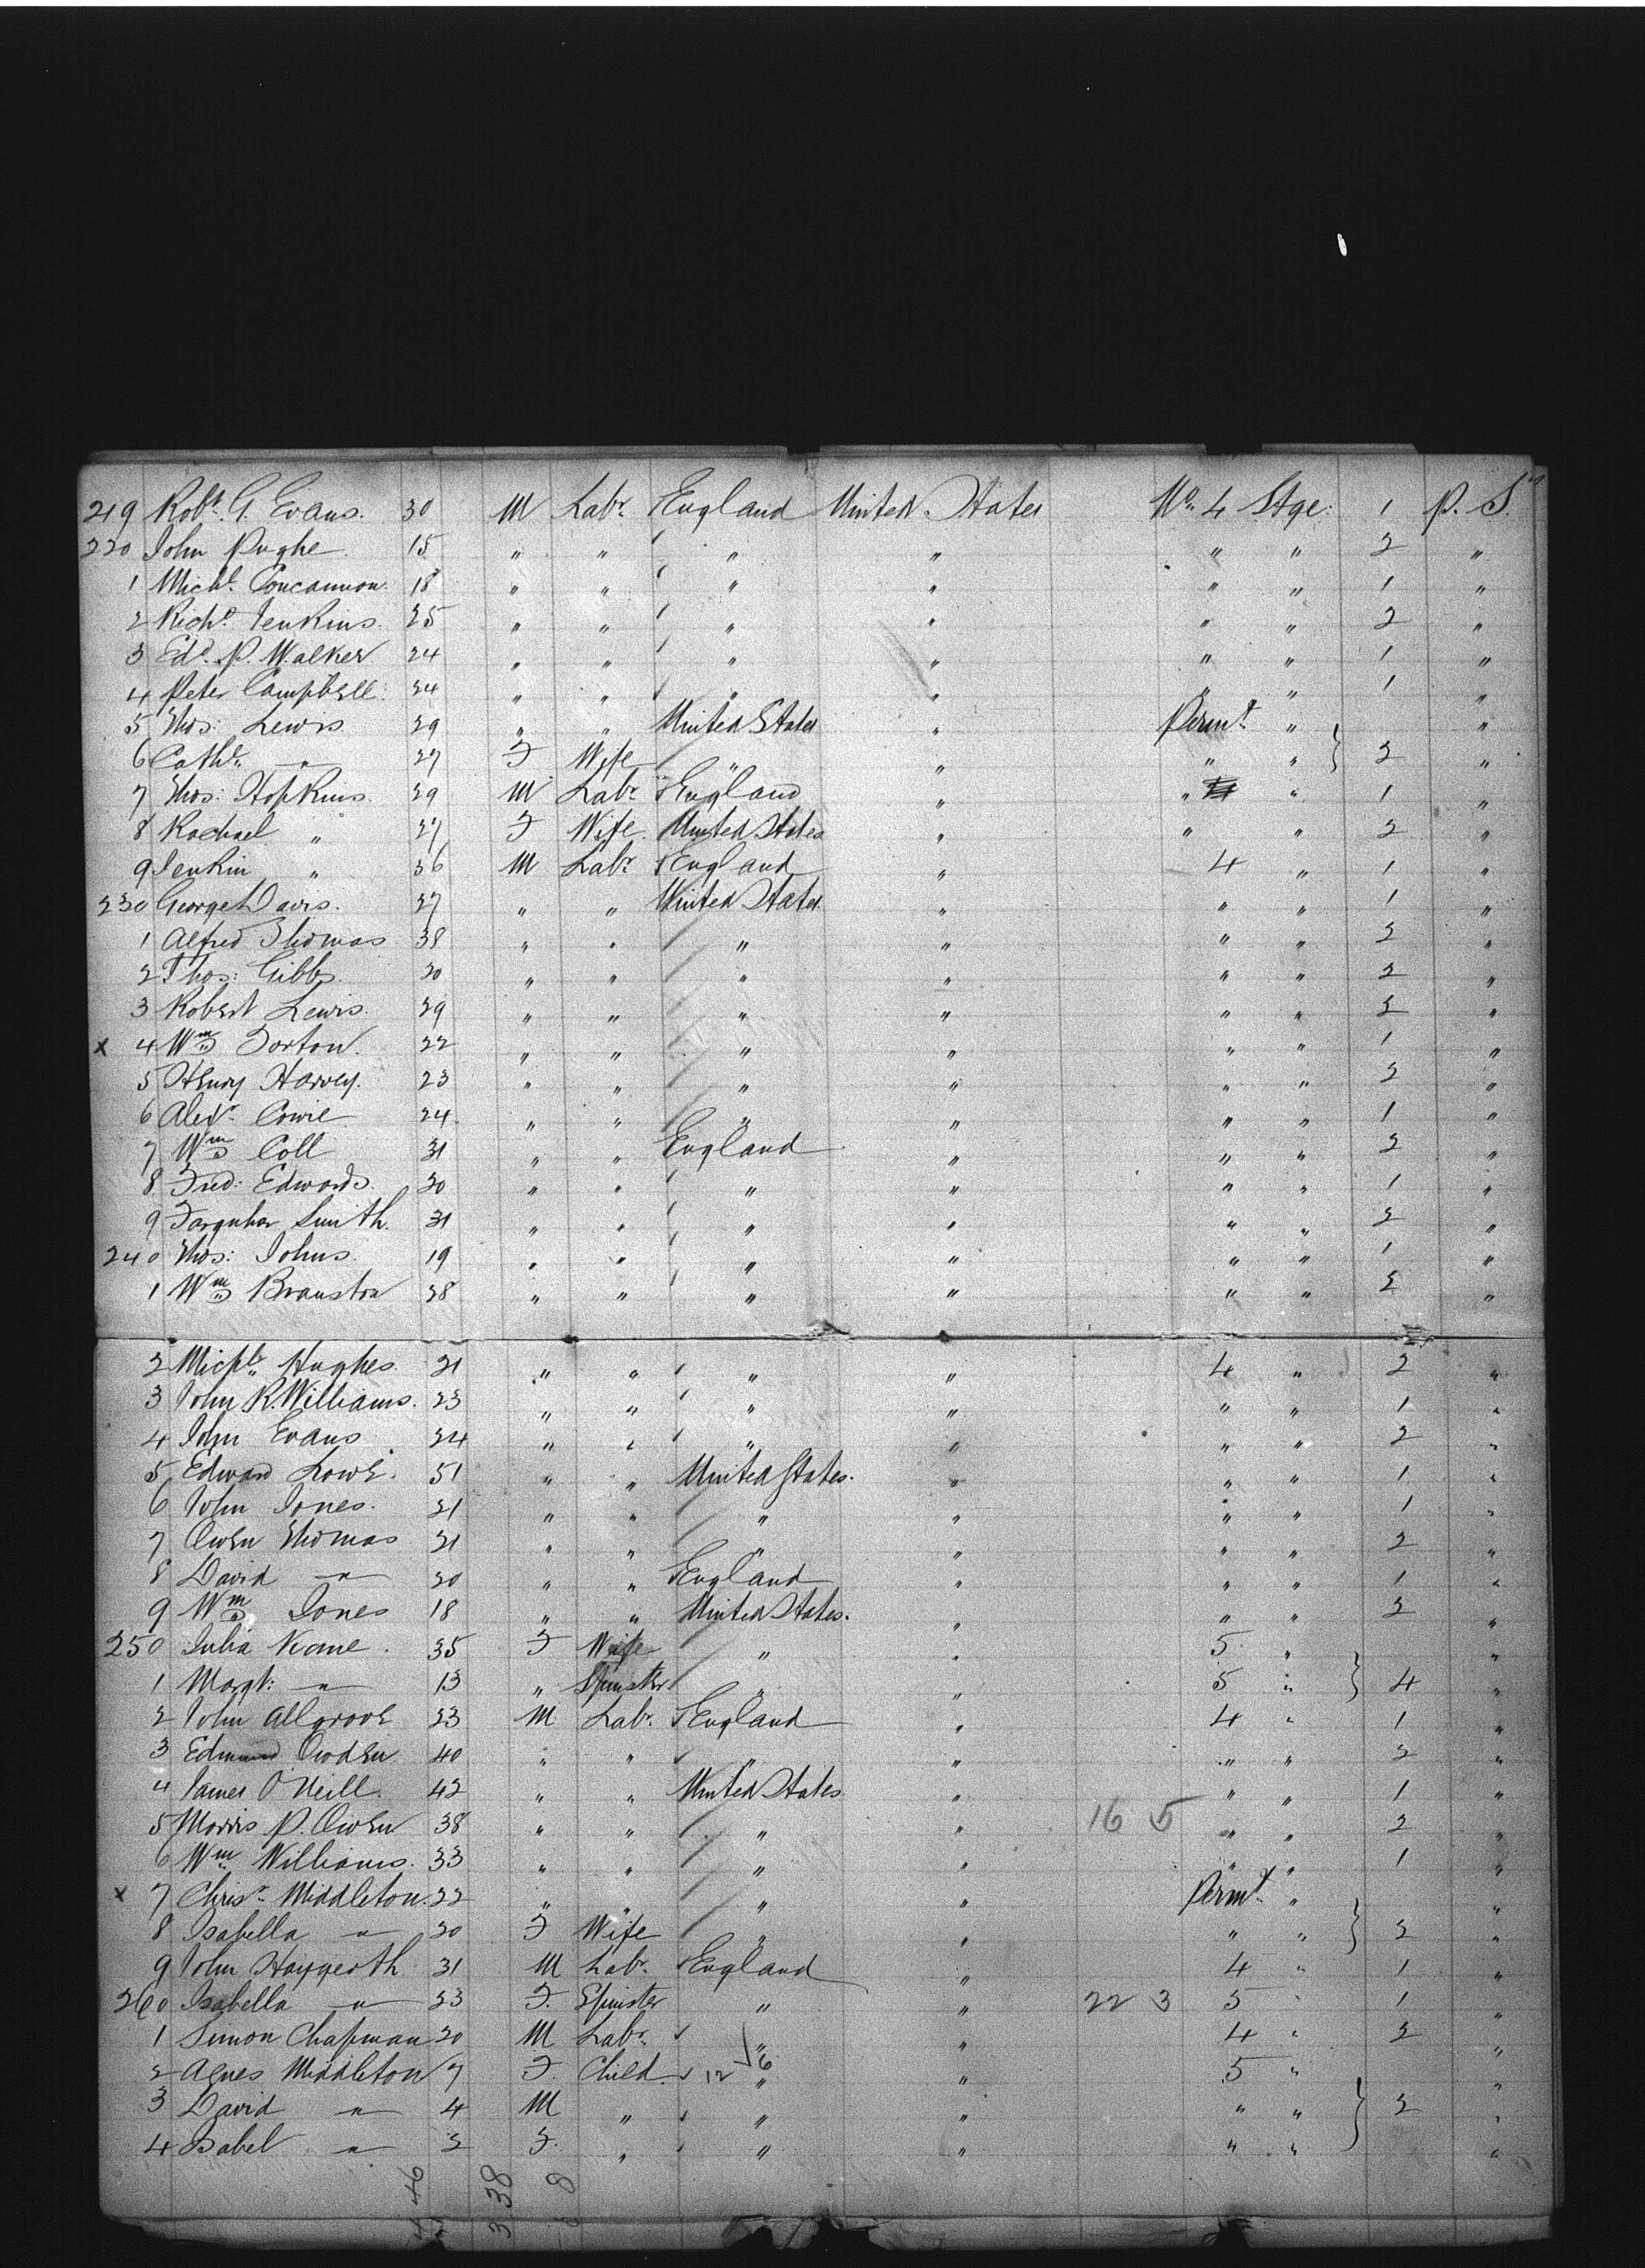 219 Robt. G. Evans. 30 M Labr. England United States No. 4 Stge: 1 P. S.
220 John Pughe 15 " " " " " " 2 "
1 Michl. Concannon. 18 " " " " " " 1 "
2 Richd. Jenkins. 25 " " " " " " 2 "
3 Edd. P. Walker 24 " " " " " " 1 "
4 Peter Campbell 24 " " " " " " 1 "
5 Thos: Lewis 29 " " United States " Permt. " "
6 Cathe. " 27 F Wife " " " " 2 "
7 Thos: Hopkins. 29 M Labr. England " " " 1 "
8 Rachael " 27 F Wife United States " " " 2 "
9 Jenkin " 36 M Labr. England " 4 " 1 "
230 George Davis. 27 " " United States " " " 1 "
1 Alfred Thomas 38 " " " " " " 2 "
2 Thos: Gibbs. 20 " " " " " " 2 "
3 Robert Lewis. 29 " " " " " " 2 "
x 4 Wm Torton. 22 " " " " " " 1 "
5 Henry Harvey. 23 " " " " " " 2 "
6 Alexr. Cowie 24 " " " " " " 1 "
7 Wm Coll 31 " " England " " " 2 "
8 Fred: Edwards. 30 " " " " " " 1 "
9 Farquhar Smith. 31 " " " " " " 2 "
240 Thos: Johns. 19 " " " " " " 1 "
1 Wm Branston 28 " " " " " " 2 "
2 Michl. Hughes. 21 " " " " 4 " 2 "
3 John R. Williams. 23 " " " " " " 1 "
4 John Evans 24 " " " " " " 2 "
5 Edward Lowe. 51 " " United States. " " " 1 "
6 John Jones. 21 " " " " " " 1 "
7 Owen Thomas 21 " " " " " " 2 "
8 David " 20 " " England " " " 1 "
9 Wm Jones 18 " " United States. " " " 2 "
250 Julia Keane. 35 F Wife " " 5 " "
1 Margt: " 13 " Spinster " " 5 " 4 "
2 John Allgrove 23 M Labr. England " 4 " 1 "
3 Edmund Owden 40 " " " " " " 2 "
4 James O'Neill. 42 " " United States " " " 1 "
5 Morris P. Owen 38 " " " " 16 5 " " 2 "
6 Wm Williams. 33 " " " " " " 1 "
x 7 Chrisr. Middleton. 22 " " " " Permt. " "
8 Isabella " 20 F Wife " " " " 2 "
9 John Haygerth 31 M Labr. England " 4 " 1 "
260 Isabella " 23 F. Spinster " " 22 3 5 " 1 "
1 Simon Chapman 20 M Labr. " " 4 " 2 "
2 Agnes Middleton 7 F. Child 12 6 " " 5 " "
3 David " 4 M " " " " " 2 "
4 Isabel " 2 F. " " " " " "
46 338 8